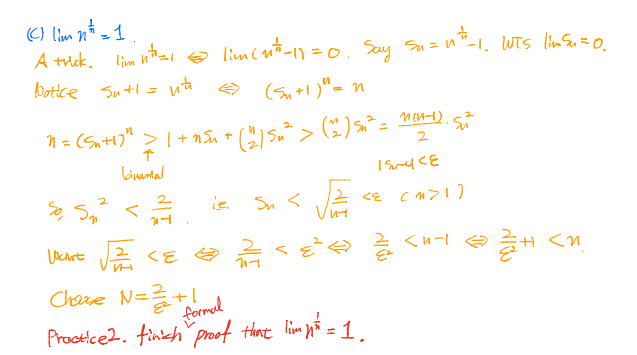 (C) lim n^{1/n} = 1.
A trick. lim n^{1/n} = 1 ⇔ lim (n^{1/n} - 1) = 0. Say Sn = n^{1/n} - 1. WTS lim Sn = 0.
Notice Sn + 1 = n^{1/n} ⇔ (Sn + 1)^n = n
n = (Sn+1)^n ≥ 1 + nSn + (n 2) Sn^2 > (n 2) Sn^2 = n(n-1)/2 · Sn^2
↑ |Sn-0| < ε
binomial
So, Sn^2 < 2/(n-1). i.e. Sn < √(2/(n-1)) < ε (n > 1)
Want √(2/(n-1)) < ε ⇔ 2/(n-1) < ε^2 ⇔ 2/ε^2 < n-1 ⇔ 2/ε^2 + 1 < n.
Choose N = 2/ε^2 + 1
formal
Practice2. finish proof that lim n^{1/n} = 1.